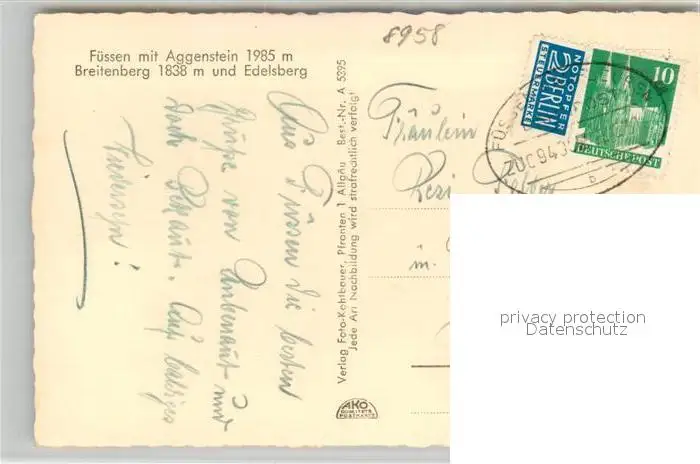 8958
Füssen mit Aggenstein 1985 m
Breitenberg 1838 m und Edelsberg
Aus Füssen die besten
Grüße von Unbekannt und
doch Bekannt. Auf baldiges
Wiedersehn!
Verlag Foto-Kohlbauer, Pfronten 1 Allgäu Best.-Nr. A 5395
Jede Art Nachbildung wird strafrechtlich verfolgt!
AKO
Fräulein
Resi
NOTOPFER
2 BERLIN
STEUERMARKE
10
DEUTSCHE POST
ZUG 943
privacy protection
Datenschutz